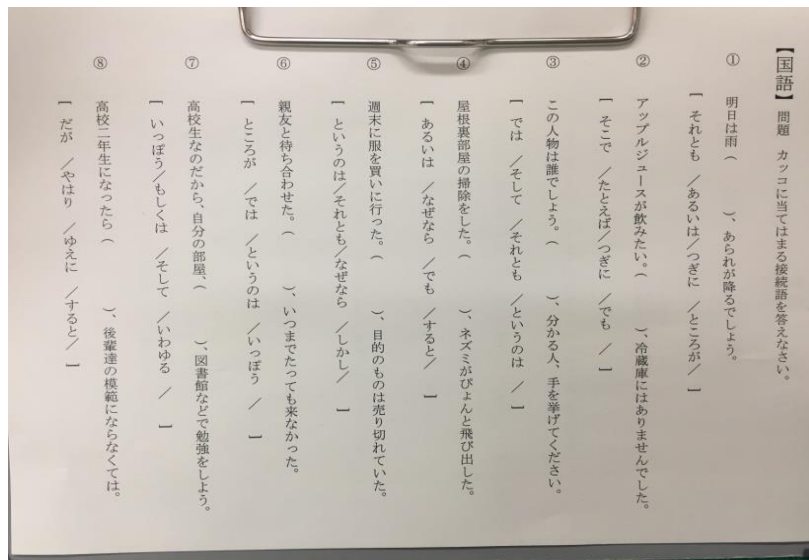 【国語】 問題　カッコに当てはまる接続語を答えなさい。
① 明日は雨（　　　）、あられが降るでしょう。
［ それとも ／あるいは／つぎに ／ところが／ ］
② アップルジュースが飲みたい。（　　　）、冷蔵庫にはありませんでした。
［ そこで ／たとえば／つぎに ／でも ／ ］
③ この人物は誰でしょう。（　　　）、分かる人、手を挙げてください。
［ では ／そして ／それとも ／というのは ／ ］
④ 屋根裏部屋の掃除をした。（　　　）、ネズミがぴょんと飛び出した。
［ あるいは ／なぜなら ／でも ／すると／ ］
⑤ 週末に服を買いに行った。（　　　）、目的のものは売り切れていた。
［ というのは／それとも／なぜなら ／しかし／ ］
⑥ 親友と待ち合わせた。（　　　）、いつまでたっても来なかった。
［ ところが ／では ／というのは ／いっぽう ／ ］
⑦ 高校生なのだから、自分の部屋、（　　　）、図書館などで勉強をしよう。
［ いっぽう／もしくは ／そして ／いわゆる ／ ］
⑧ 高校二年生になったら（　　　）、後輩達の模範にならなくては。
［ だが ／やはり ／ゆえに ／すると／ ］